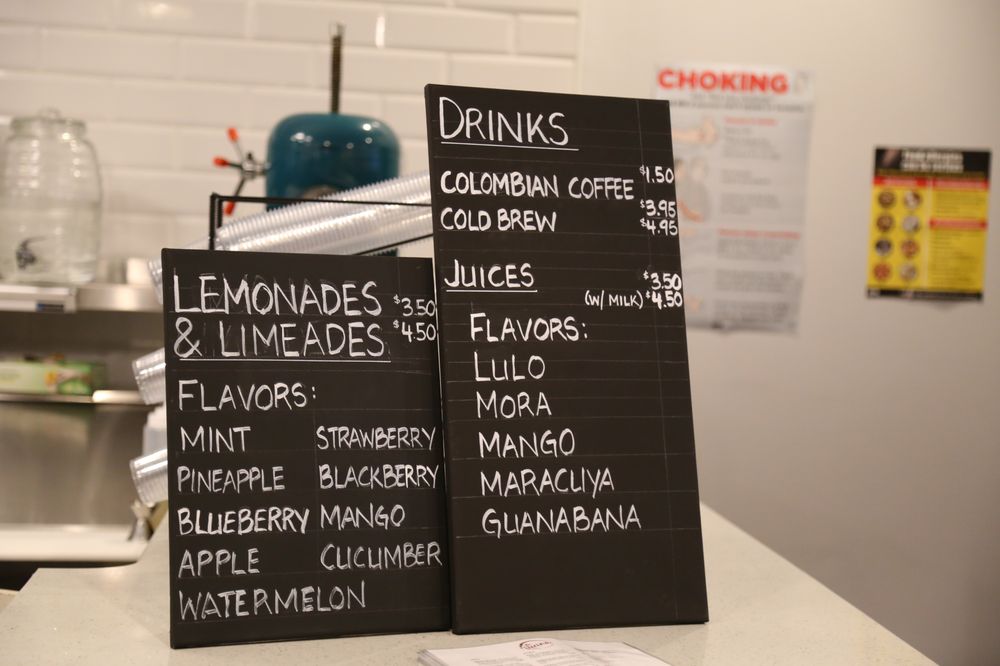 LEMONADES $3.50
& LIMEADES $4.50
FLAVORS:
MINT STRAWBERRY
PINEAPPLE BLACKBERRY
BLUEBERRY MANGO
APPLE CUCUMBER
WATERMELON
DRINKS
COLOMBIAN COFFEE $1.50
$3.95
COLD BREW $4.95
JUICES $3.50
(W/ MILK) $4.50
FLAVORS:
LULO
MORA
MANGO
MARACUYA
GUANABANA
CHOKING